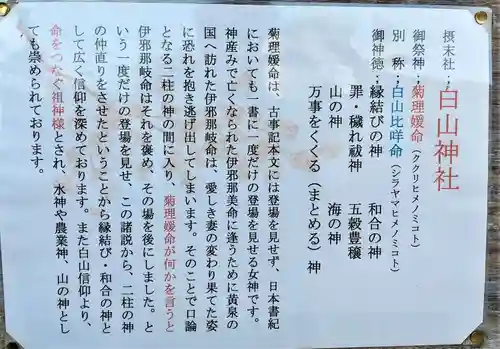 摂末社；白山神社
御祭神；菊理媛命（ククリヒメノミコト）
別　称；白山比咩命（シラヤマヒメノミコト）
御神徳；縁結びの神　和合の神
罪・穢れ祓神　五穀豊穣
山の神　海の神
万事をくくる（まとめる）神
菊理媛命は、古事記本文には登場を見せず、日本書紀
においても一書に一度だけの登場を見せる女神です。
神産みで亡くなられた伊邪那美命に逢うために黄泉の
国へ訪れた伊邪那岐命は、愛しき妻の変わり果てた姿
に恐れを抱き逃げ出してしまいます。そのことで口論
となる二柱の神の間に入り、菊理媛命が何かを言うと
伊邪那岐命はそれを褒め、その場を後にしました。と
いう一度だけの登場を見せ、この諸説から、二柱の神
の仲直りをさせたということから縁結び・和合の神と
して広く信仰を深めております。また白山信仰より、
命をつなぐ祖神様とされ、水神や農業神、山の神とし
ても崇められております。